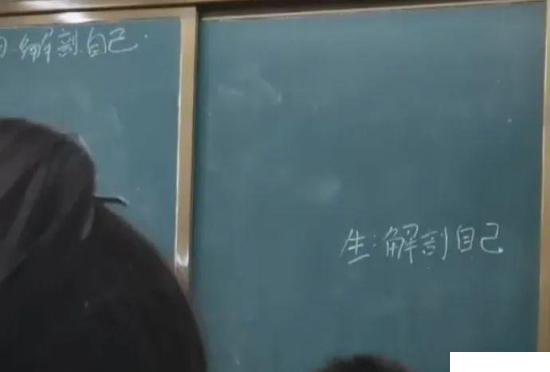 解剖自己.
生:解剖自己